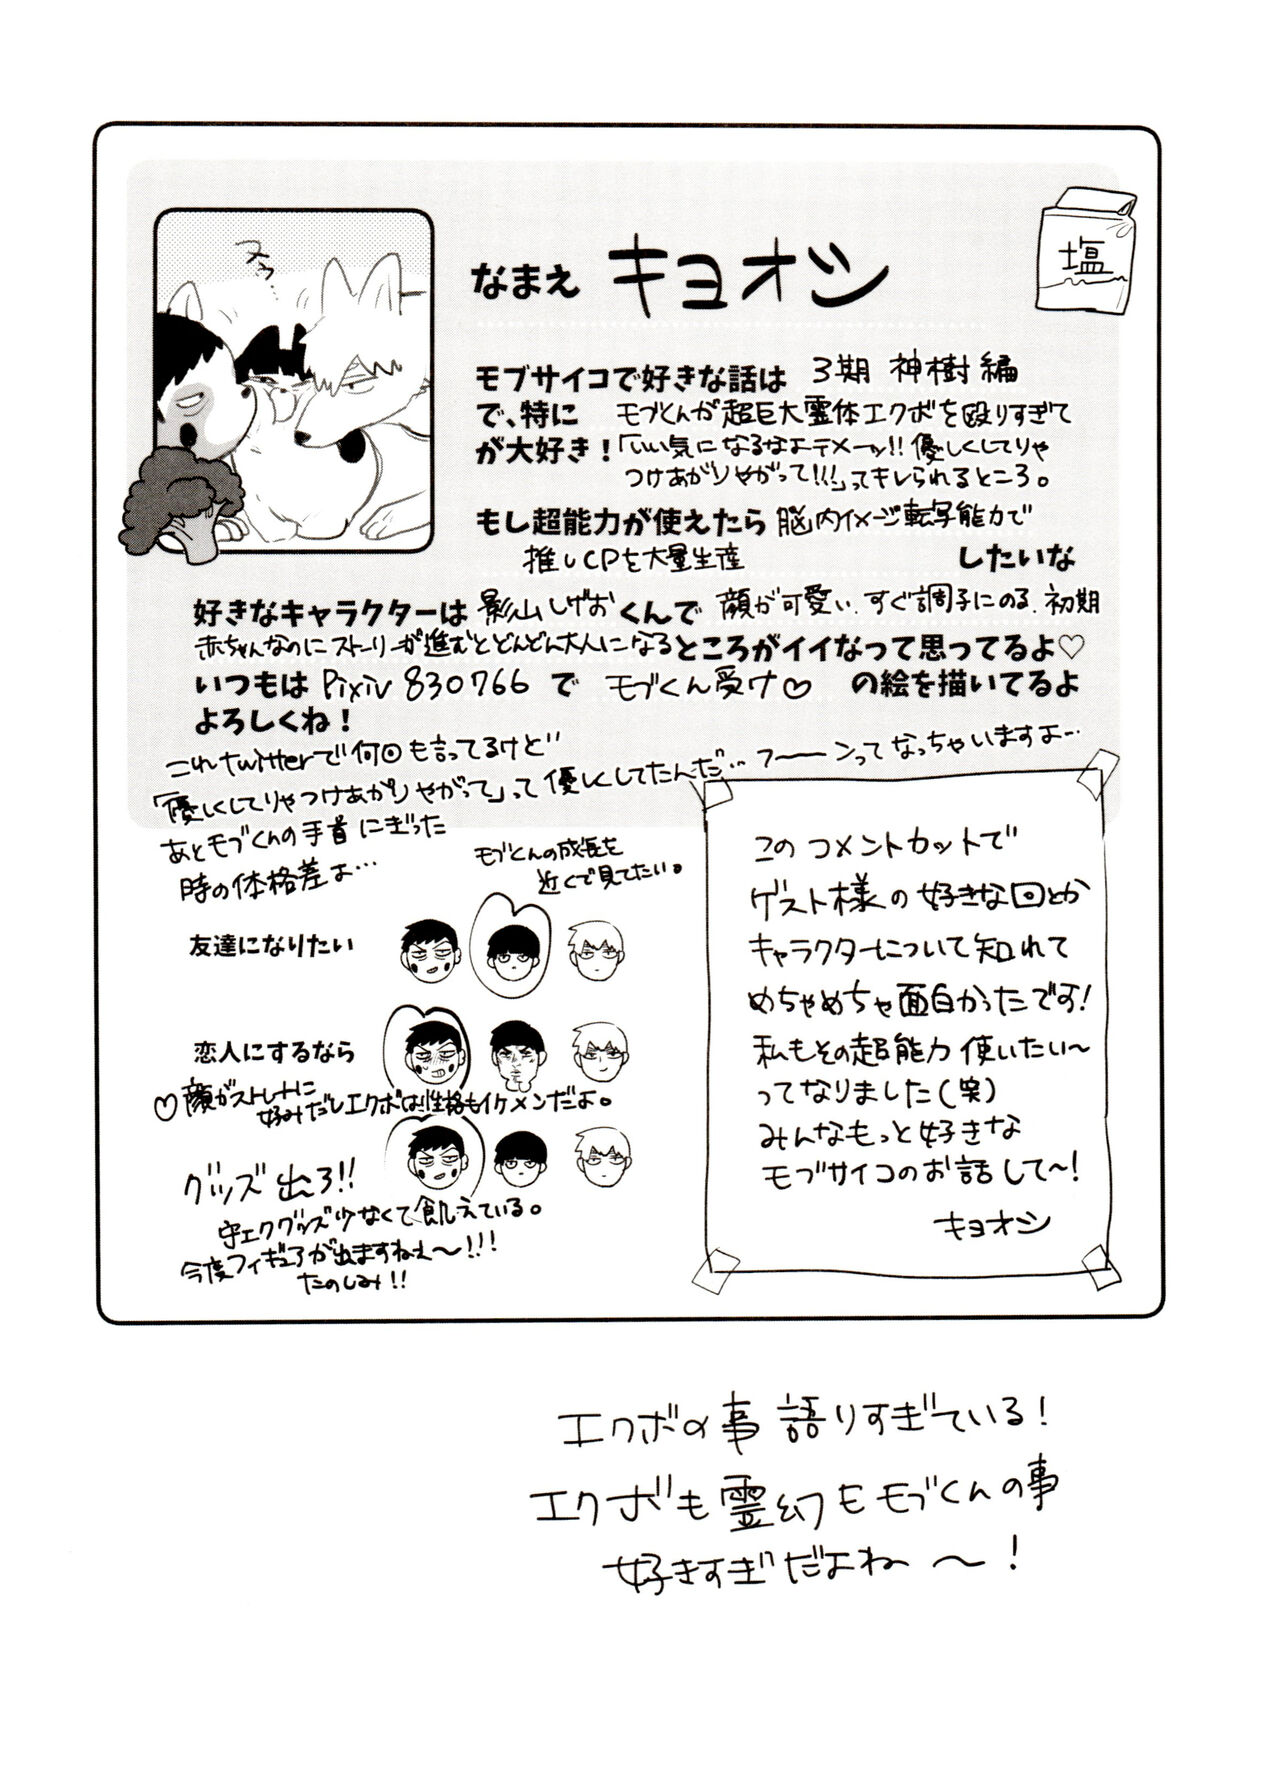 ヌッ…
塩
なまえ キヨオシ
モブサイコで好きな話は 3期 神樹編
で、特に モブくんが超巨大霊体エクボを殴りすぎて
が大好き!「いい気になるなよテメーッ!!優しくしてりゃ
つけあがりやがって!!!」ってキレられるところ。
もし超能力が使えたら 脳内イメージ転写能力で
推しCPを大量生産 したいな
好きなキャラクターは 影山しげお くんで 顔が可愛い、すぐ調子にのる、初期
赤ちゃんなのにストーリーが進むとどんどん大人になる ところがイイなって思ってるよ♡
いつもは Pixiv 830766 で モブくん受け♡ の絵を描いてるよ
よろしくね!
これtwitterで何回も言ってるけど
「優しくしてりゃつけあがりやがって」って優しくしてたんだ…フーーンってなっちゃいますよ…
あとモブくんの手首にぎった
時の体格差よ…
モブくんの成長を
近くで見てたい。
友達になりたい
恋人にするなら
♡顔がストレートに
好みだしエクボは性格もイケメンだよ。
グッズ出ろ!!
守エクグッズ少なくて飢えている。
今度フィギュアが出ますねぇ〜!!!
たのしみ!!
このコメントカットで
ゲスト様の好きな回とか
キャラクターについて知れて
めちゃめちゃ面白かったです!
私もその超能力使いたい〜
ってなりました(笑)
みんなもっと好きな
モブサイコのお話して〜!
キヨオシ
エクボの事語りすぎている!
エクボも霊幻もモブくんの事
好きすぎだよね〜!